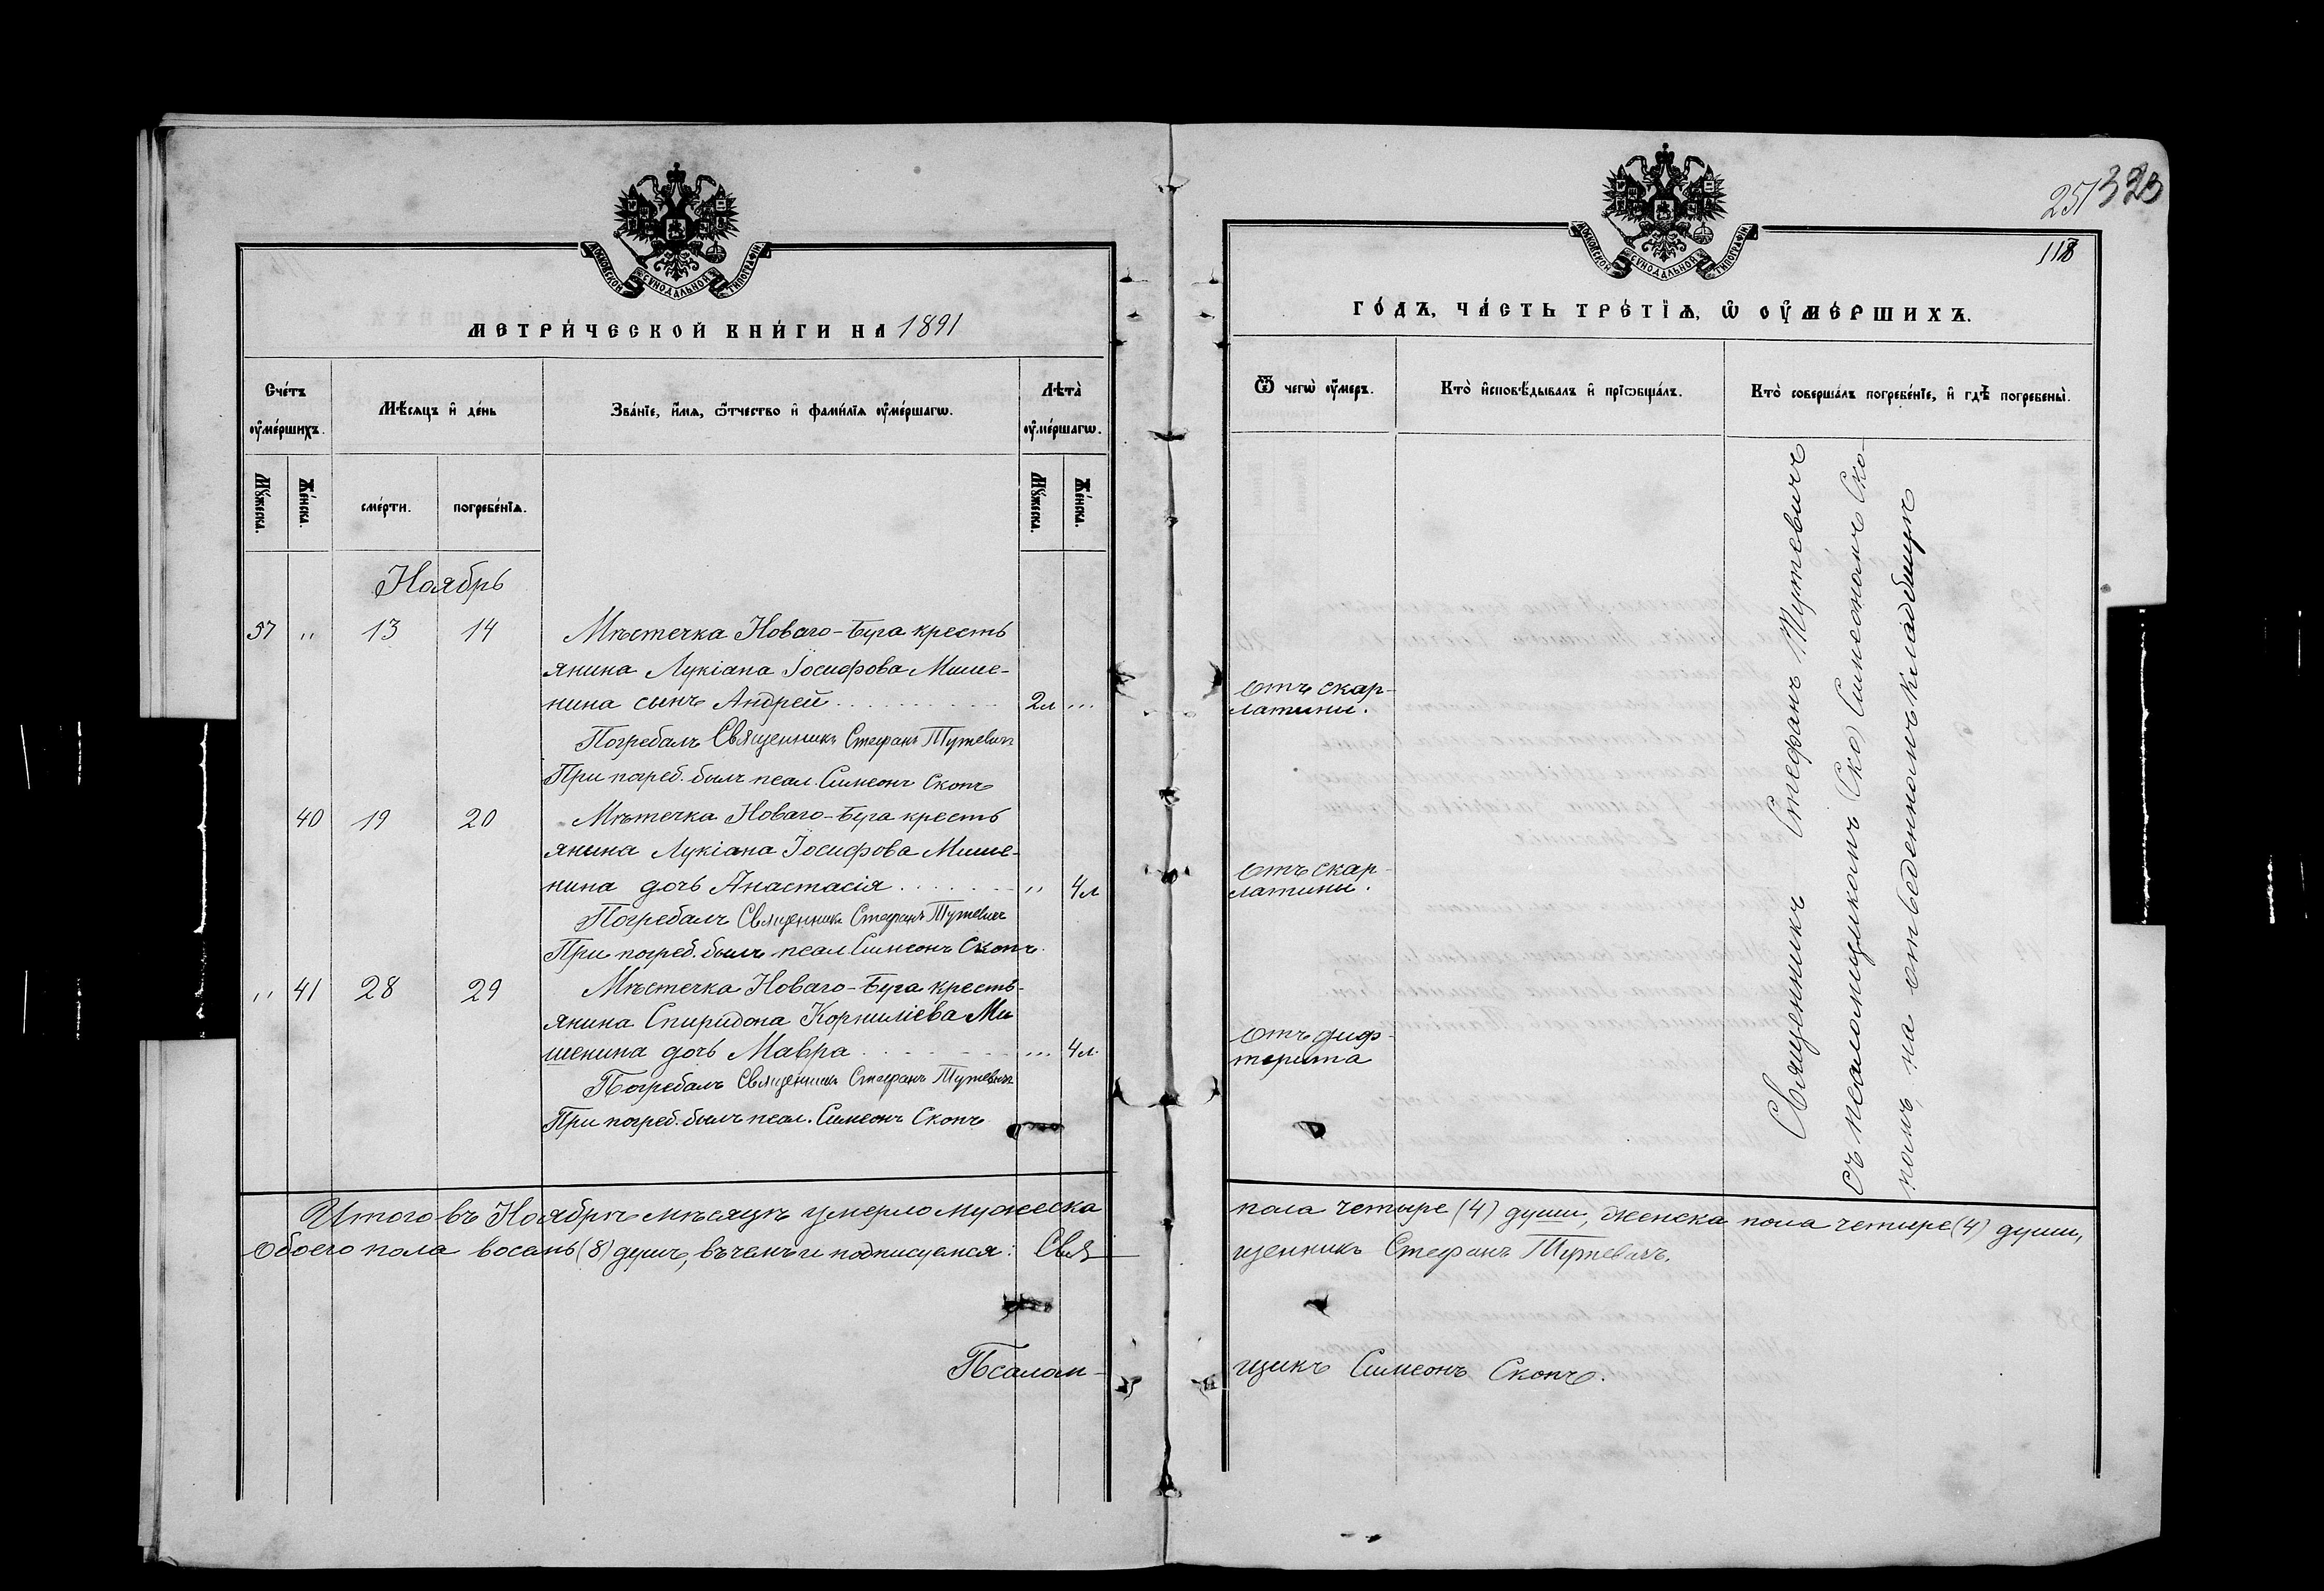 МОСКОВСКОЙ СѴНОДАЛЬНОЙ ТИПОГРАФІИ
МЕТРИ́ЧЕСКОЙ КНИ́ГИ НА 1891
Счéтъ ᲂу҆мéршихъ.
Мѣ́сяцъ и҆ дéнь
Звáнїе, и҆́мѧ, ѻ҆́тчество и҆ фами́лїѧ ᲂу҆мéршагѡ.
Лѣта̀ ᲂу҆мéршагѡ.
Мꙋ́жеска.
Жéнска.
смéрти.
погребéнїѧ.
Мꙋ́жеска.
Жéнска.
Ноябрь
37 " 13 14 Мѣстечка Новаго-Буга кресть
янина Лукіана Іосифова Мише-
нина сынъ Андрей . . . . . . . . . . 2л ...
Погребалъ Священникъ Стефанъ Тутевичъ
При погреб. былъ псал. Симеонъ Скопъ
40 19 20 Мѣстечка Новаго-Буга кресть
янина Лукіана Іосифова Мише-
нина дочь Анастасія . . . . . . . " 4л
Погребалъ Священникъ Стефанъ Тутевичъ
При погреб. былъ псал Симеонъ Скопъ.
" 41 28 29 Мѣстечка Новаго-Буга кресть-
янина Спиридона Корниліева Ми
шенина дочь Мавра . . . . . . . . ... 4л.
Погребалъ Священникъ Стефанъ Тутевичъ
При погреб. былъ псал. Симеонъ Скопъ
Итого въ Ноябрѣ мѣсяцѣ умерло мужеска
Обоего пола восемь (8) душъ, въ чемъ и подписуемся: Свя
Псалом-
323
118
МОСКОВСКОЙ СѴНОДАЛЬНОЙ ТИПОГРАФІИ
ГО́ДЪ, ЧÁСТЬ ТРÉТЇѦ, Ѡ҆ ОУ҆МÉРШИХЪ.
Ѿ чегѡ̀ ᲂу҆́меръ.
Кто̀ и҆сповѣ́дывалъ и҆ прїѡбщáлъ.
Кто̀ совершáлъ погребéнїе, и҆ гдѣ̀ погребены̀.
Отъ скар-
латины.
Отъ скар-
латины.
Отъ диф-
терита
Священникъ Стефанъ Тутевичъ
съ псаломщикомъ (Ско) Симеономъ Ско-
помъ, на отведенномъ кладбищѣ
пола четыре (4) души, женска пола четыре (4) души,
щенникъ Стефанъ Тутевичъ.
щикъ Симеонъ Скопъ.